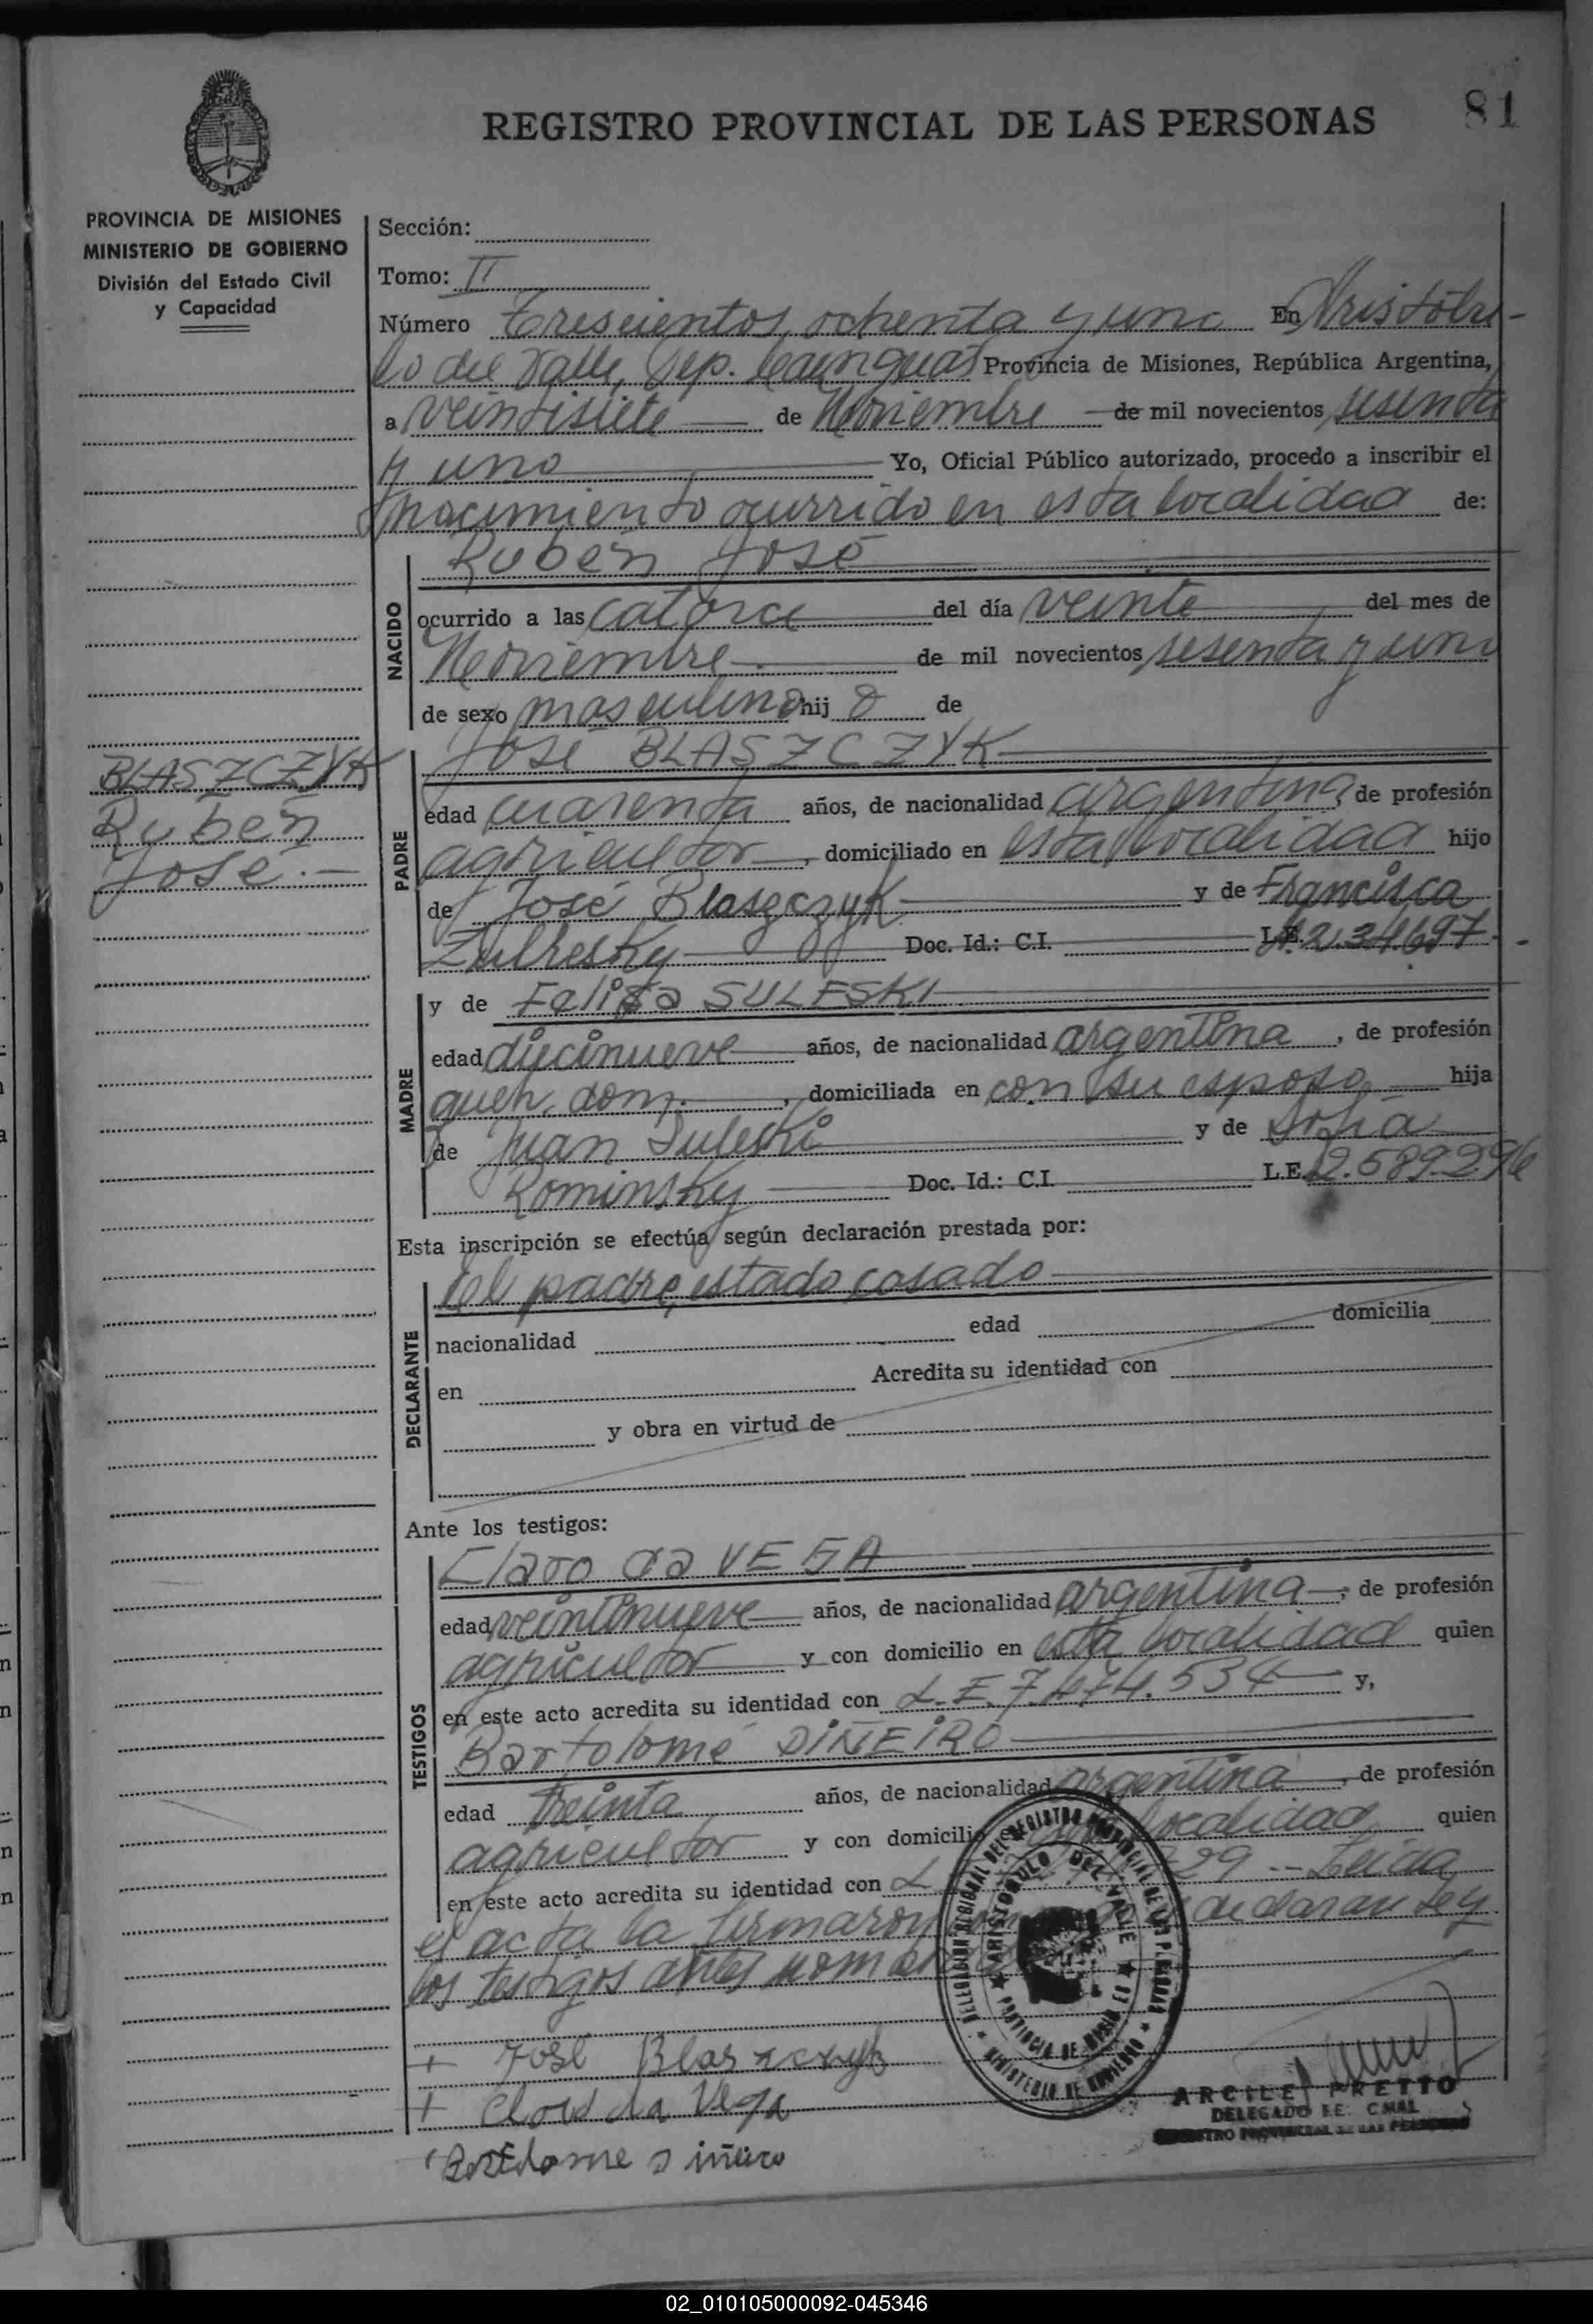 81
REGISTRO PROVINCIAL DE LAS PERSONAS
PROVINCIA DE MISIONES
MINISTERIO DE GOBIERNO
División del Estado Civil
y Capacidad
Sección:
Tomo: II
Número Trescientos ochenta y uno En Aristóbu-
lo del Valle, Dep. Cainguas Provincia de Misiones, República Argentina,
a veintisiete de Noviembre de mil novecientos sesenta
y uno Yo, Oficial Público autorizado, procedo a inscribir el
nacimiento ocurrido en esta localidad de:
NACIDO
Rubén José
ocurrido a las catorce del día veinte del mes de
Noviembre de mil novecientos sesenta y uno
de sexo masculino hij o de
BLASZCZYK
Rubén
José.-
PADRE
José BLASZCZYK
edad cuarenta años, de nacionalidad argentina, de profesión
agricultor, domiciliado en esta localidad hijo
de José Blaszczyk y de Francisca
Doc. Id.: C.I. 234697.-
MADRE
y de Felisa SULESKI
edad diecinueve años, de nacionalidad argentina, de profesión
queh. dom., domiciliada en con su esposo hija
de Juan Suleski y de Sofía
Rominsky Doc. Id.: C.I. L.E. 2.589.296
Esta inscripción se efectúa según declaración prestada por:
DECLARANTE
el padre, estado casado
nacionalidad edad domicilia
en Acredita su identidad con
y obra en virtud de
Ante los testigos:
TESTIGOS
Claro da VEGA
edad veintinueve años, de nacionalidad argentina, de profesión
agricultor y con domicilio en esta localidad quien
en este acto acredita su identidad con L.E. 7.474.534 y,
Bartolomé DIÑEIRO
edad treinta años, de nacionalidad argentina, de profesión
agricultor y con domicilio localidad quien
en este acto acredita su identidad con L 29 -- Leida
el acta la firmaron declarante y
los testigos antes
DELEGACION REGIONAL DEL REGISTRO PROVINCIAL DE LAS PERSONAS
MINISTERIO DE GOBIERNO
ARISTOBULO DEL VALLE
PROVINCIA DE MISIONES
+ José Blaszczyk
+ Claro da Vega
ARCILE PRETTO
DELEGADO
REGISTRO PROVINCIAL DE LAS PERSONAS
02_010105000092-045346